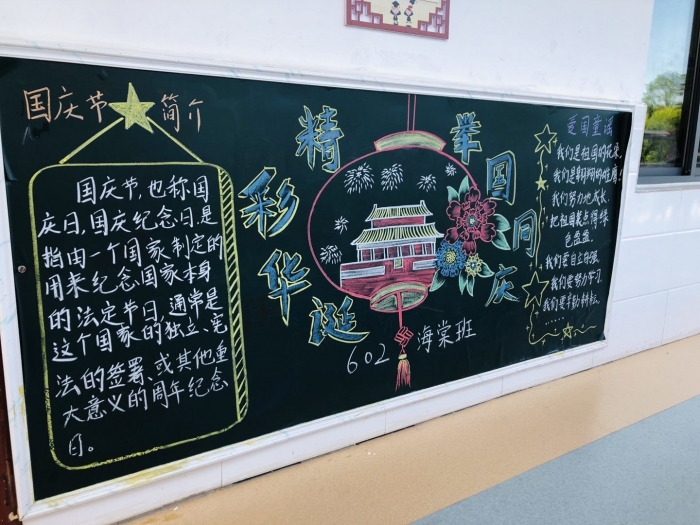 国庆节 简介
国庆节,也称国
庆日,国庆纪念日,是
指由一个国家制定的
用来纪念国家本身
的法定节日,通常是
这个国家的独立、宪
法的签署、或其他重
大意义的周年纪念
日。
精
彩
华
诞
举
国
同
庆
602 海棠班
爱国童谣
我们是祖国的花朵,
我们是翱翔的雄鹰!
我们努力地成长,
把祖国装点得绿
色盎盎.
我们要自立自强.
我们要努力学习.
我们要辛勤耕耘.
......